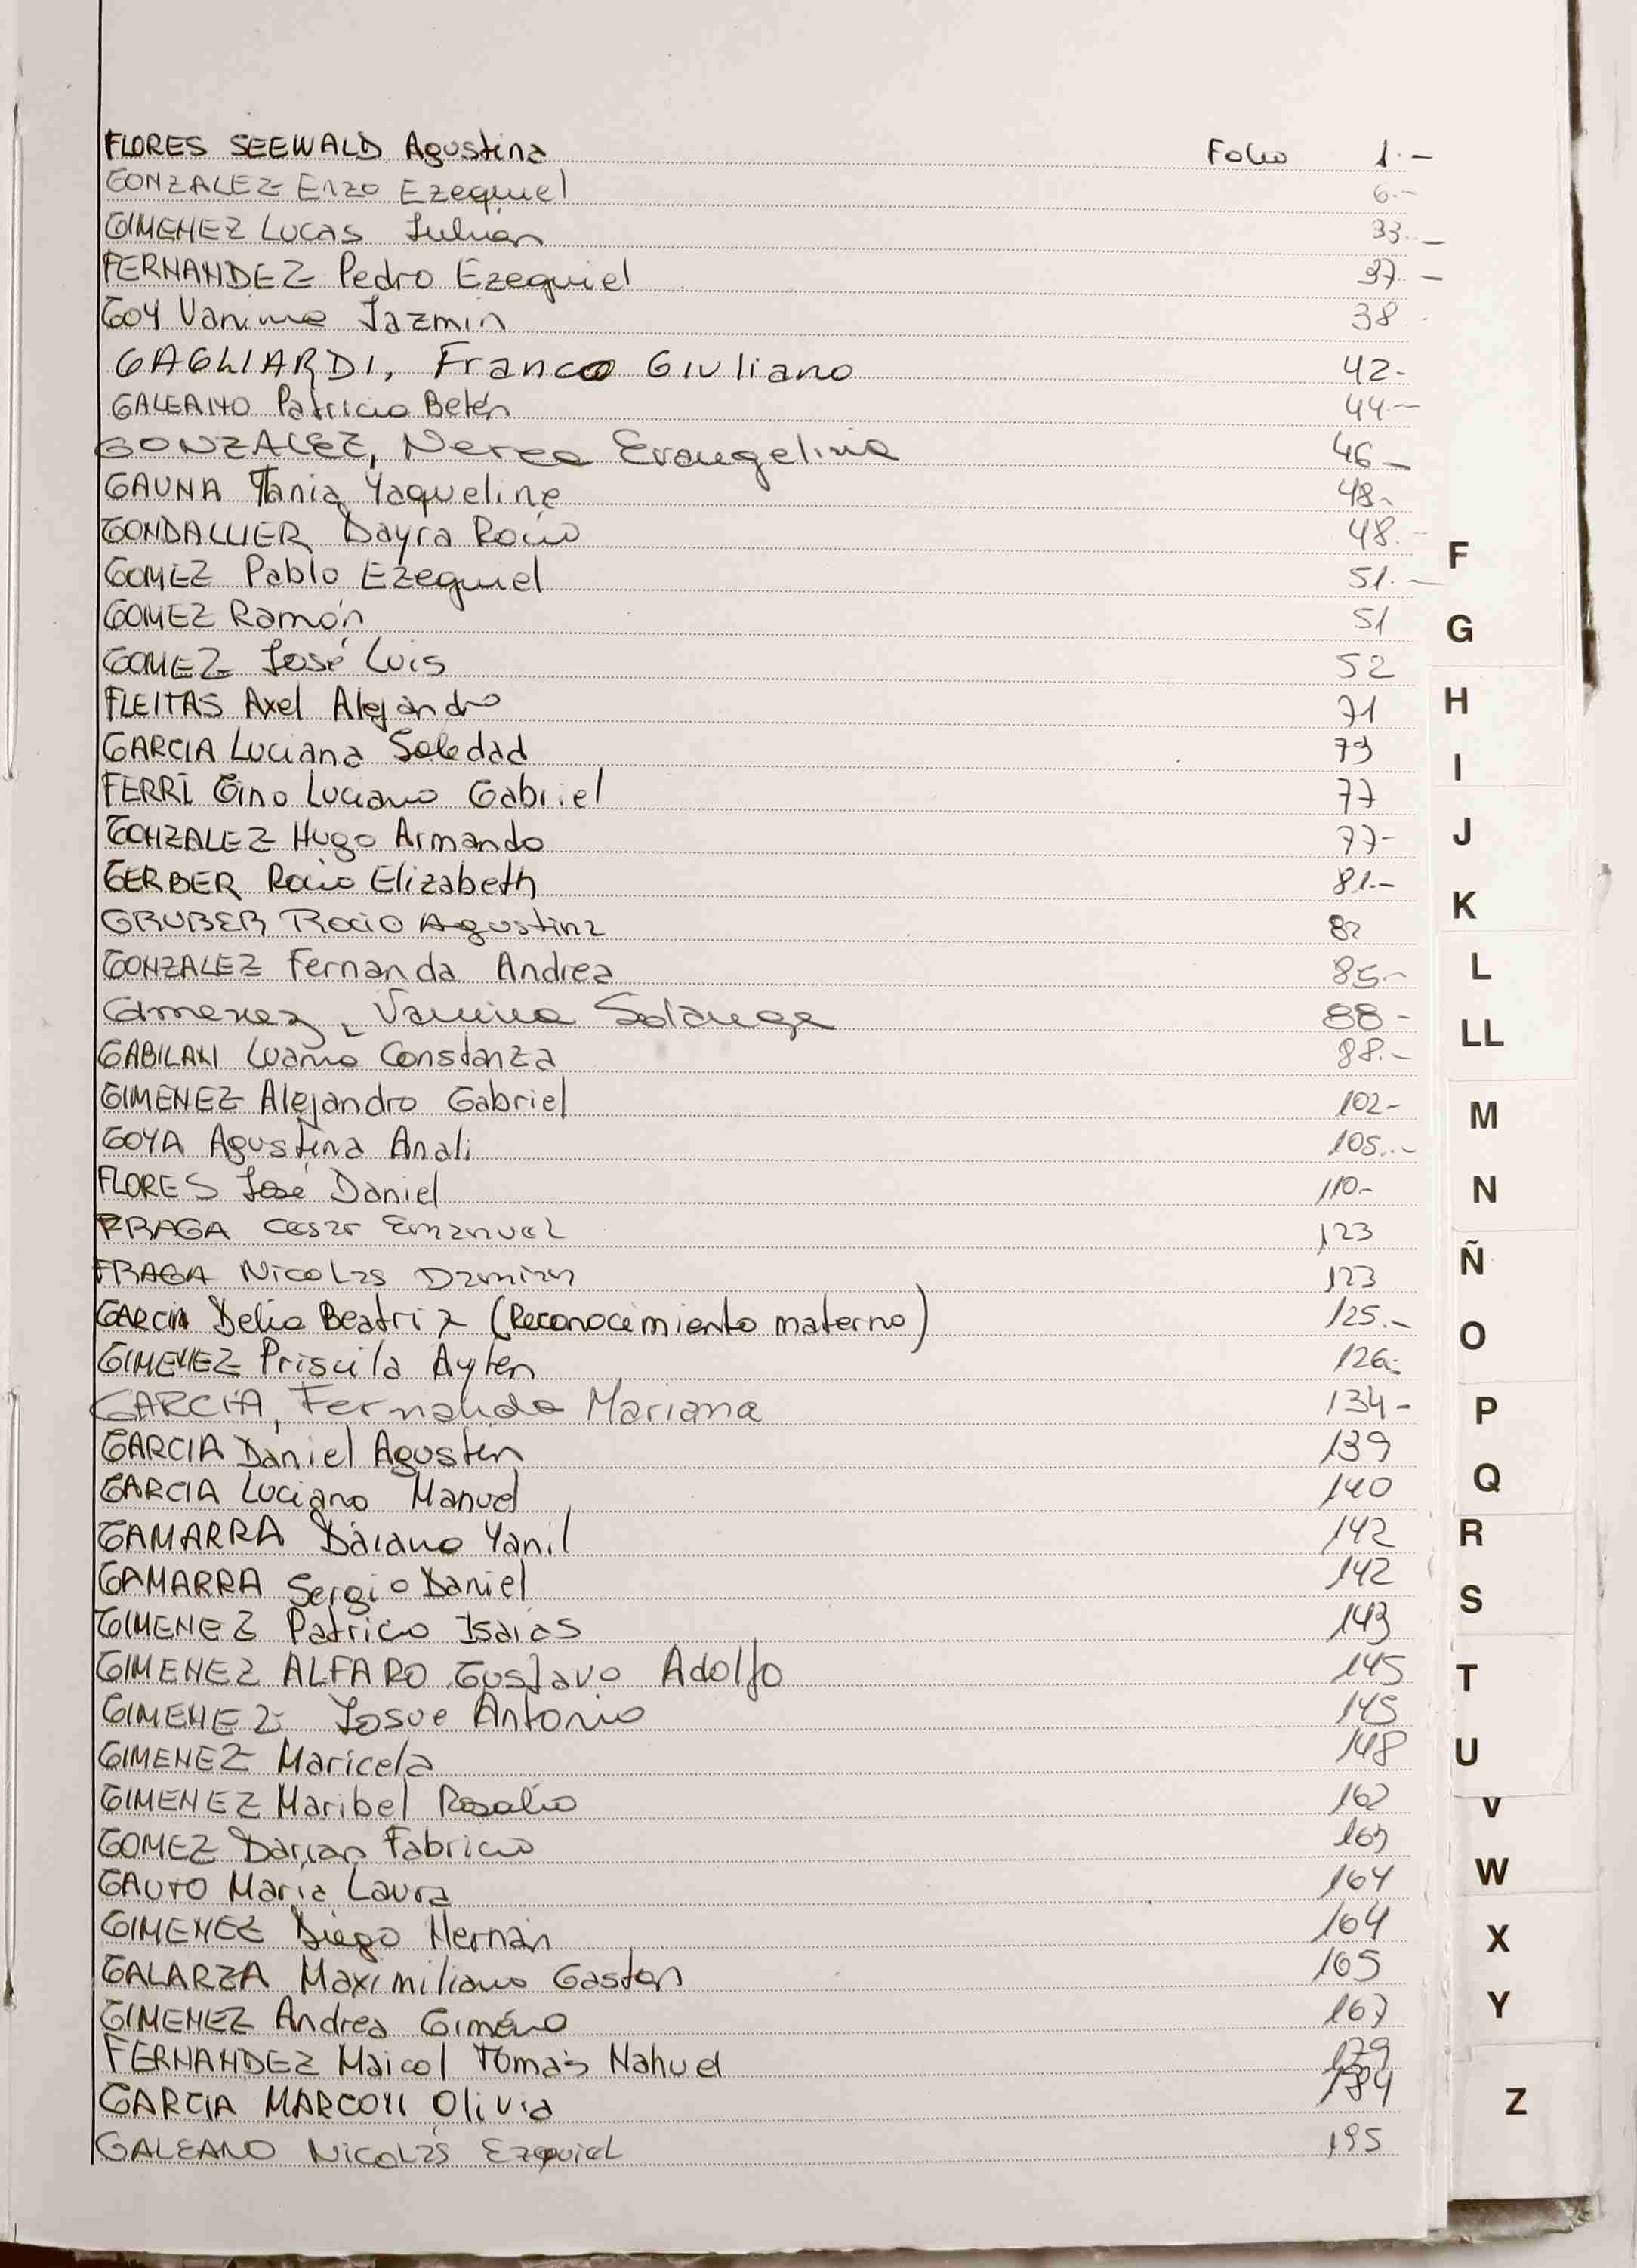 FLORES SEEWALD Agustina Folio 1.-
GONZALEZ Enzo Ezequiel 6.-
GIMENEZ Lucas Julián 33.-
FERNANDEZ Pedro Ezequiel 37.-
GOY Vanina Jazmín 38.-
GAGLIARDI, Franco Giuliano 42-
GALEANO Patricia Belén 44.-
GONZALEZ, Nerea Evangelina 46-
GAUNA Tania Yaqueline 48-
GONDALLIER Dayra Rocío 48.-
GOMEZ Pablo Ezequiel 51.-
GOMEZ Ramón 51
GOMEZ José Luis 52
FLEITAS Axel Alejandro 71
GARCIA Luciana Soledad 73
FERRI Gino Luciano Gabriel 77
GONZALEZ Hugo Armando 77-
GERBER Rocío Elizabeth 81.-
GRUBER Rocio Agustina 82
GONZALEZ Fernanda Andrea 85.-
Gimenez, Vanina Solange 88-
GABILAN Constanza 88.-
GIMENEZ Alejandro Gabriel 102-
GOYA Agustina Anali 105.-
FLORES José Daniel 110-
FRAGA Cesar Emanuel 123
FRAGA Nicolas Damian 123
GARCIA Delia Beatriz (Reconocimiento materno) 125.-
GIMENEZ Priscila Aylen 126.-
GARCÍA, Fernanda Mariana 134-
GARCIA Daniel Agustín 139
GARCIA Luciano Manuel 140
GAMARRA Daiana Yanil 142
GAMARRA Sergio Daniel 142
GIMENEZ Patricio Isaías 143
GIMENEZ ALFARO Gustavo Adolfo 145
GIMENEZ Josue Antonio 145
GIMENEZ Maricela 148
GIMENEZ Maribel Rosalía 162
GOMEZ Darian Fabricio 163
GAUTO María Laura 164
GIMENEZ Diego Hernán 164
GALARZA Maximiliano Gastón 165
GIMENEZ Andrea Giména 167
FERNANDEZ Maicol Tomás Nahuel 179
GARCIA MARCON Olivia 184
GALEANO Nicolás Ezequiel 195
F
G
H
I
J
K
L
LL
M
N
Ñ
O
P
Q
R
S
T
U
V
W
X
Y
Z